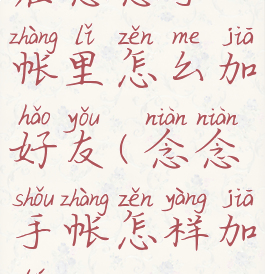 zhàng lǐ zěn me jiā
帐里怎么加
hǎo yǒu niàn niàn
好友(念念
shǒu zhàng zěn yàng jiā
手帐怎样加